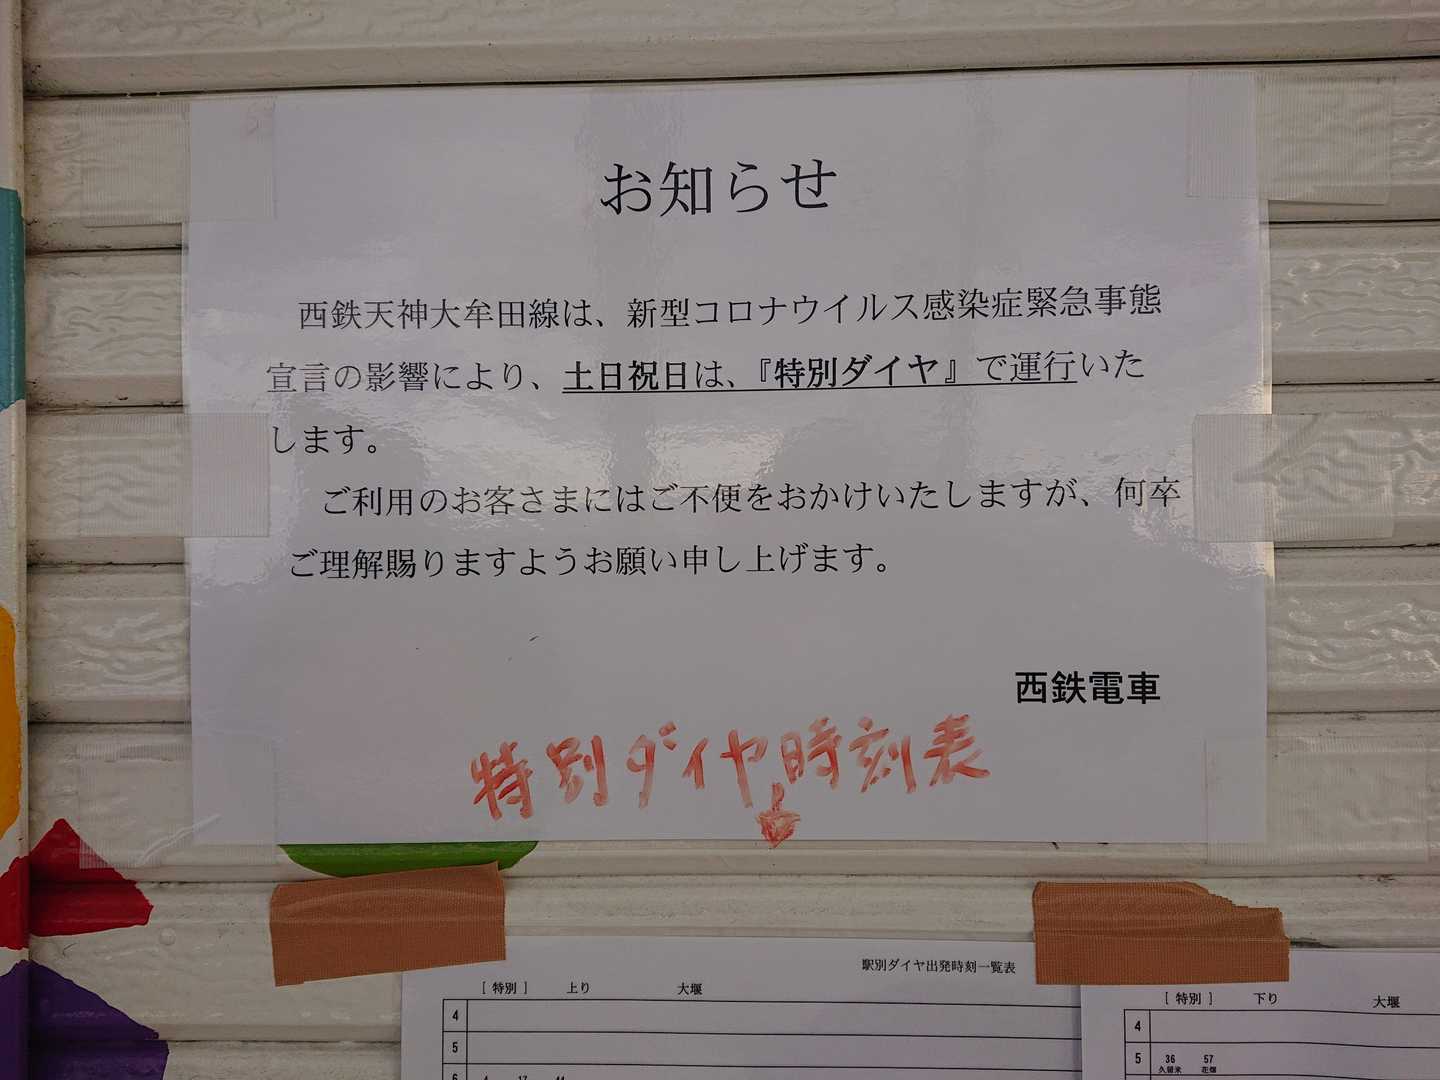 お知らせ
西鉄天神大牟田線は、新型コロナウイルス感染症緊急事態
宣言の影響により、土日祝日は、『特別ダイヤ』で運行いた
します。
ご利用のお客さまにはご不便をおかけいたしますが、何卒
ご理解賜りますようお願い申し上げます。
西鉄電車
特別ダイヤ時刻表
駅別ダイヤ出発時刻一覧表
[ 特別 ] 上り 大堰
4
5
6 4 17 44
[ 特別 ] 下り 大堰
4
5 36 57
久留米 花畑